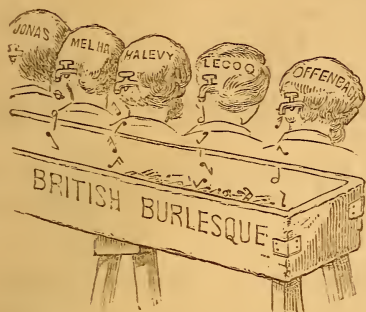 JONAS
MELHA
HALEVY
LECOQ
OFFENBACH
BRITISH BURLESQUE